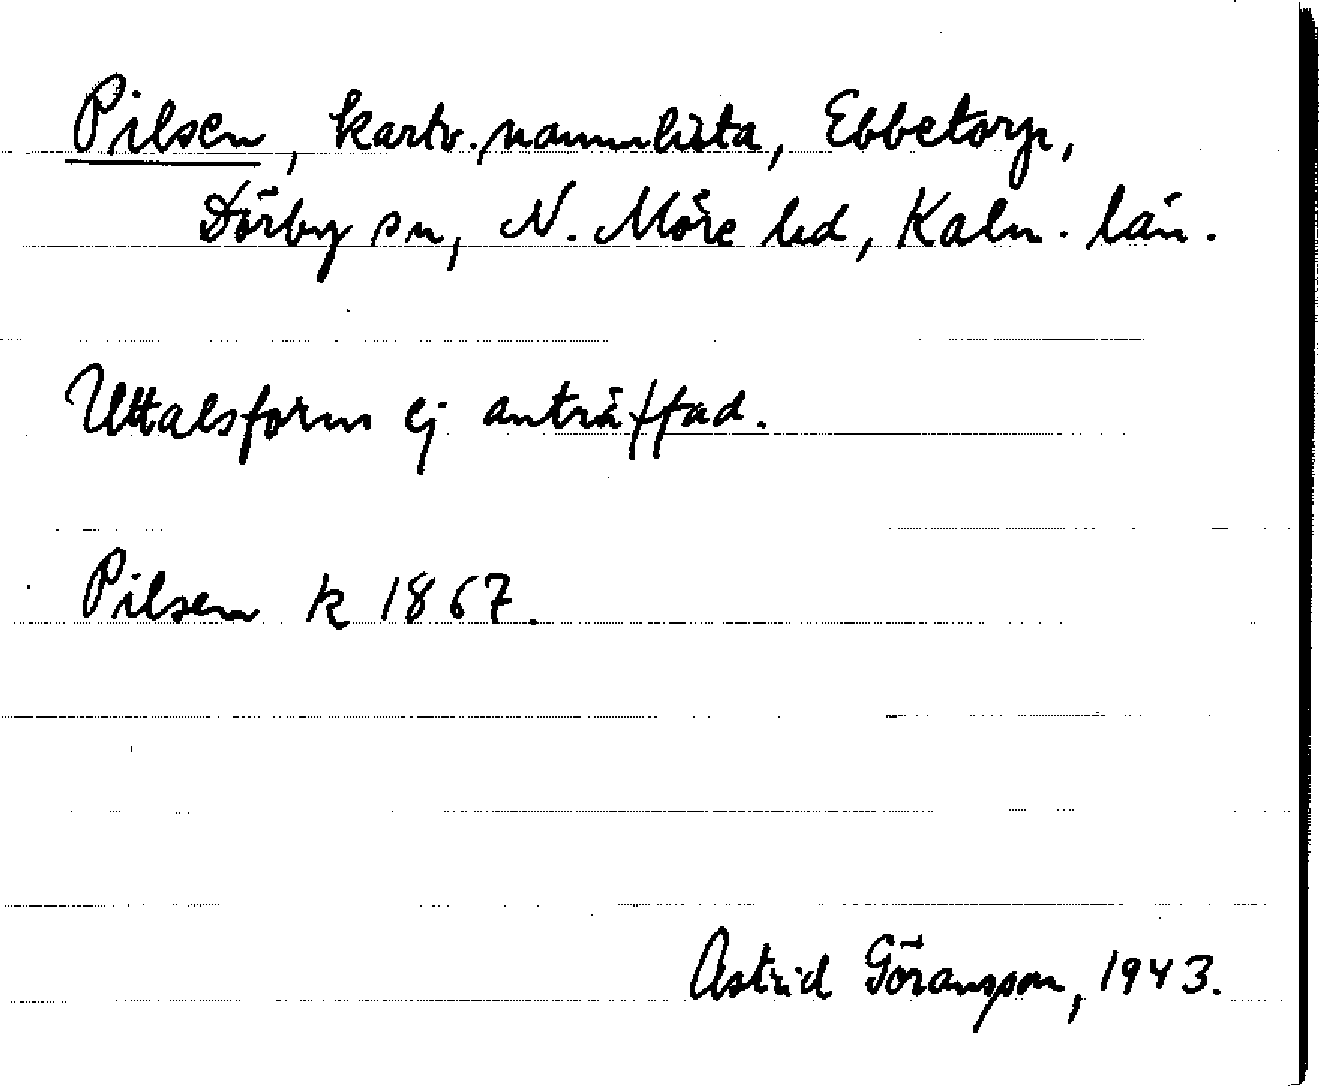 Pilsen, kartv. namnlista, Ebbetorp,
Dörby sn, N. Möre hd, Kalm. län.
Uttalsform ej anträffad.
Pilsen k 1867.
Astrid Göransson, 1943.